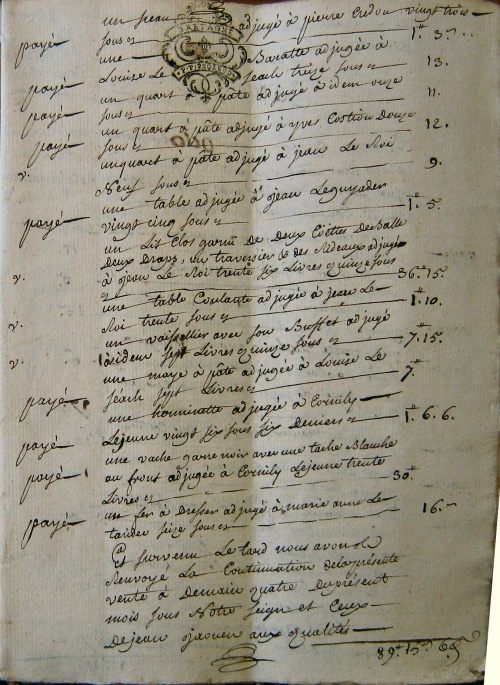 un adjugé à pierre Credou vingt trois
payé sous 1# 3.
une Baratte adjugée à
Louise Le Séach treize sous 13.
payé un quart à pâte adjugé à idem onze
sous 11.
payé un quart à pâte adjugé à yves Costiou Douze
sous 12.
payé un quart à pâte adjugé à jean Le Roi
v. Neuf sous 9.
une table adjugée à jean Leguyader
payé vingt cinq sous 1# 5.
un Lit Clos garni De Deux Coëttes De Balle
Deux Draps, un traversier & des Rideaux adjugé
v. à jean Le Roi trente six Livres quinze sous
36# 15
une table Coulante adjugée à jean Le
v. Roi trente sous 1# 10.
un vaisselier avec son Buffet adjugé
v. à idem sept Livres quinze sous 7# 15.
une maye à pâte adjugée à Louise Le
payé Séach sept Livres 7#
une hominette adjugée à Corniily
payé Lejeune vingt six sous six Deniers 1# 6. 6.
une vache garre noir avec une tache Blanche
payé au front adjugée à Corniily Lejeune trente
Livres 30#
un fer à Dresser adjugé à marie anne Le
payé tardec seize sous 16.
Et survenu Le tard nous avons
Renvoyé La Continuation dela présente
vente à Demain quatre Duprésent
mois sous Notre Seign et Ceux
De jean jaouen aux qualités
89# 15s 6d